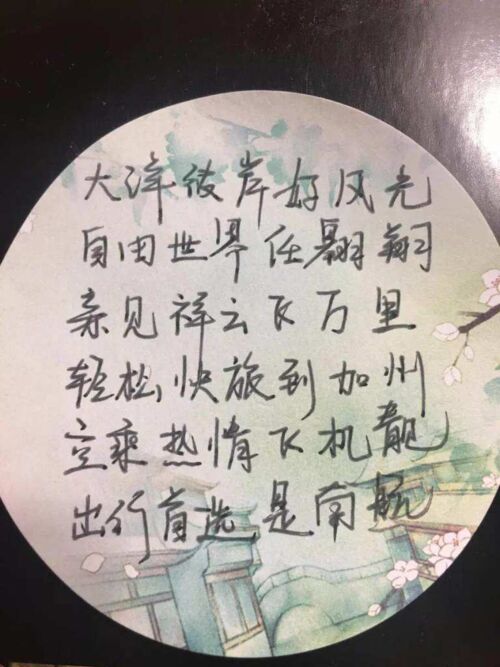 大洋彼岸好风光
自由世界任翱翔
亲见祥云飞万里
轻松快旅到加州
空乘热情飞机靓
出行首选是南航